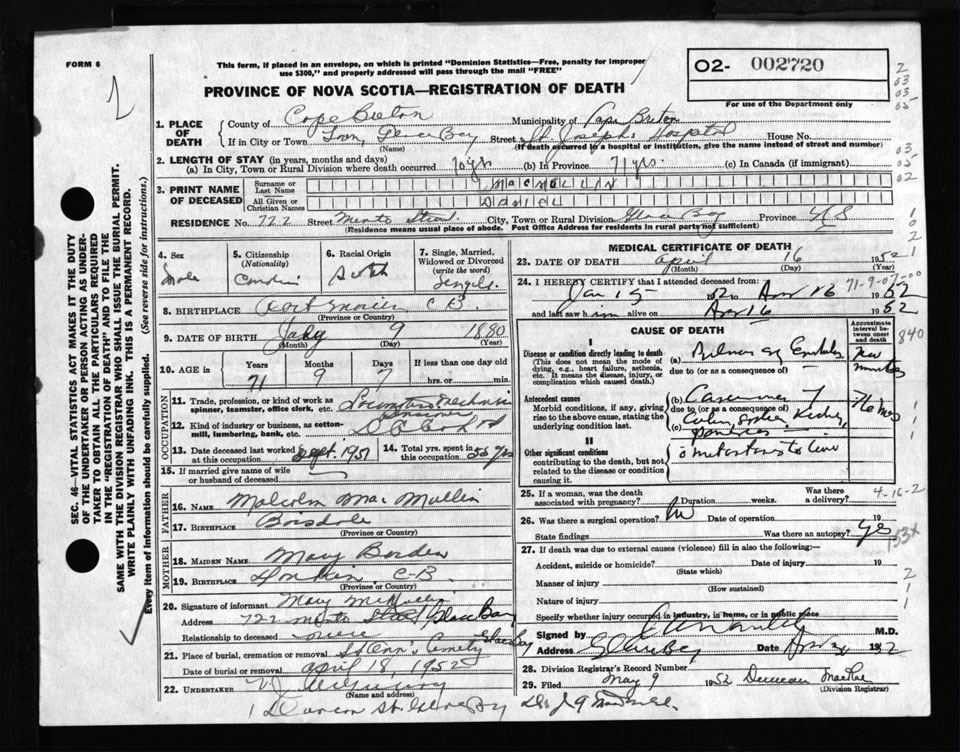 FORM 6
This form, if placed in an envelope, on which is printed "Dominion Statistics—Free, penalty for improper
use $300," and properly addressed will pass through the mail "FREE"
02- 002720
For use of the Department only
PROVINCE OF NOVA SCOTIA—REGISTRATION OF DEATH
1. PLACE OF DEATH
County of Cape Breton Municipality of Cape Breton
If in City or Town Town, Glace Bay Street St Josephs Hospital House No.
(Name) (If death occurred in a hospital or institution, give the name instead of street and number)
2. LENGTH OF STAY (in years, months and days)
(a) In City, Town or Rural Division where death occurred 70 yrs (b) In Province 71 yrs. (c) In Canada (if immigrant)
3. PRINT NAME OF DECEASED
Surname or Last Name MACMULLIN
All Given or Christian Names DANIEL
RESIDENCE No. 722 Street Minto Street City, Town or Rural Division Glace Bay Province N S
(Residence means usual place of abode. Post Office Address for residents in rural parts not sufficient)
4. Sex Male
5. Citizenship (Nationality) Canadian
6. Racial Origin Scotch
7. Single, Married, Widowed or Divorced (write the word) Single
8. BIRTHPLACE Port Morien C B
(Province or Country)
9. DATE OF BIRTH July 9 1880
(Month) (Day) (Year)
10. AGE in Years 71 Months 9 Days 7 If less than one day old hrs. or min.
OCCUPATION
11. Trade, profession, or kind of work as spinner, teamster, office clerk, etc. Locomotive
12. Kind of industry or business, as cotton-mill, lumbering, bank, etc.
13. Date deceased last worked at this occupation Sept. 1951 14. Total yrs. spent in this occupation 55 yrs
15. If married give name of wife or husband of deceased
FATHER
16. NAME Malcolm Mac Mullin
17. BIRTHPLACE Boisdale
(Province or Country)
MOTHER
18. MAIDEN NAME Mary Borden
19. BIRTHPLACE Donkin C-B.
(Province or Country)
20. Signature of informant Mary McMullin
Address 722 Minto Street Glace Bay
Relationship to deceased niece
21. Place of burial, cremation or removal St Anns Cemetery Glace Bay
Date of burial or removal April 18, 1952
22. UNDERTAKER V J McGillivray
(Name and address)
MEDICAL CERTIFICATE OF DEATH
23. DATE OF DEATH April 16 1952
(Month) (Day) (Year)
24. I HEREBY CERTIFY that I attended deceased from:
Jan 15 1952 to Apr 16 1952
and last saw him alive on Apr 16 1952
71-9-07-00
CAUSE OF DEATH
Approximate interval between onset and death
I
Disease or condition directly leading to death (This does not mean the mode of dying, e.g., heart failure, asthenia, etc. It means the disease, injury, or complication which caused death.)
(a) Pulmonary Embolus few minutes
due to (or as a consequence of)
Antecedent causes
Morbid conditions, if any, giving rise to the above cause, stating the underlying condition last.
(b) Carcinoma of
due to (or as a consequence of)
(c)
II
Other significant conditions
contributing to the death, but not related to the disease or condition causing it.
metastases to liver
840
25. If a woman, was the death associated with pregnancy? Duration weeks. Was there a delivery?
4-16-2
26. Was there a surgical operation? No Date of operation 19
State findings Was there an autopsy? Yes
153X
27. If death was due to external causes (violence) fill in also the following:—
Accident, suicide or homicide? Date of injury 19
(State which)
Manner of injury
(How sustained)
Nature of injury
Specify whether injury occurred in industry, in home, or in public place
Signed by M.D.
Address Glace Bay Date 1952
28. Division Registrar's Record Number
29. Filed May 9 1952 Duncan MacRae
(Division Registrar)
SEC. 46—VITAL STATISTICS ACT MAKES IT THE DUTY
OF THE UNDERTAKER OR PERSON ACTING AS UNDERTAKER TO OBTAIN ALL THE PARTICULARS REQUIRED
IN THE "REGISTRATION OF DEATH" AND TO FILE THE
SAME WITH THE DIVISION REGISTRAR WHO SHALL ISSUE THE BURIAL PERMIT.
WRITE PLAINLY WITH UNFADING INK. THIS IS A PERMANENT RECORD.
Every item of information should be carefully supplied. (See reverse side for instructions.)